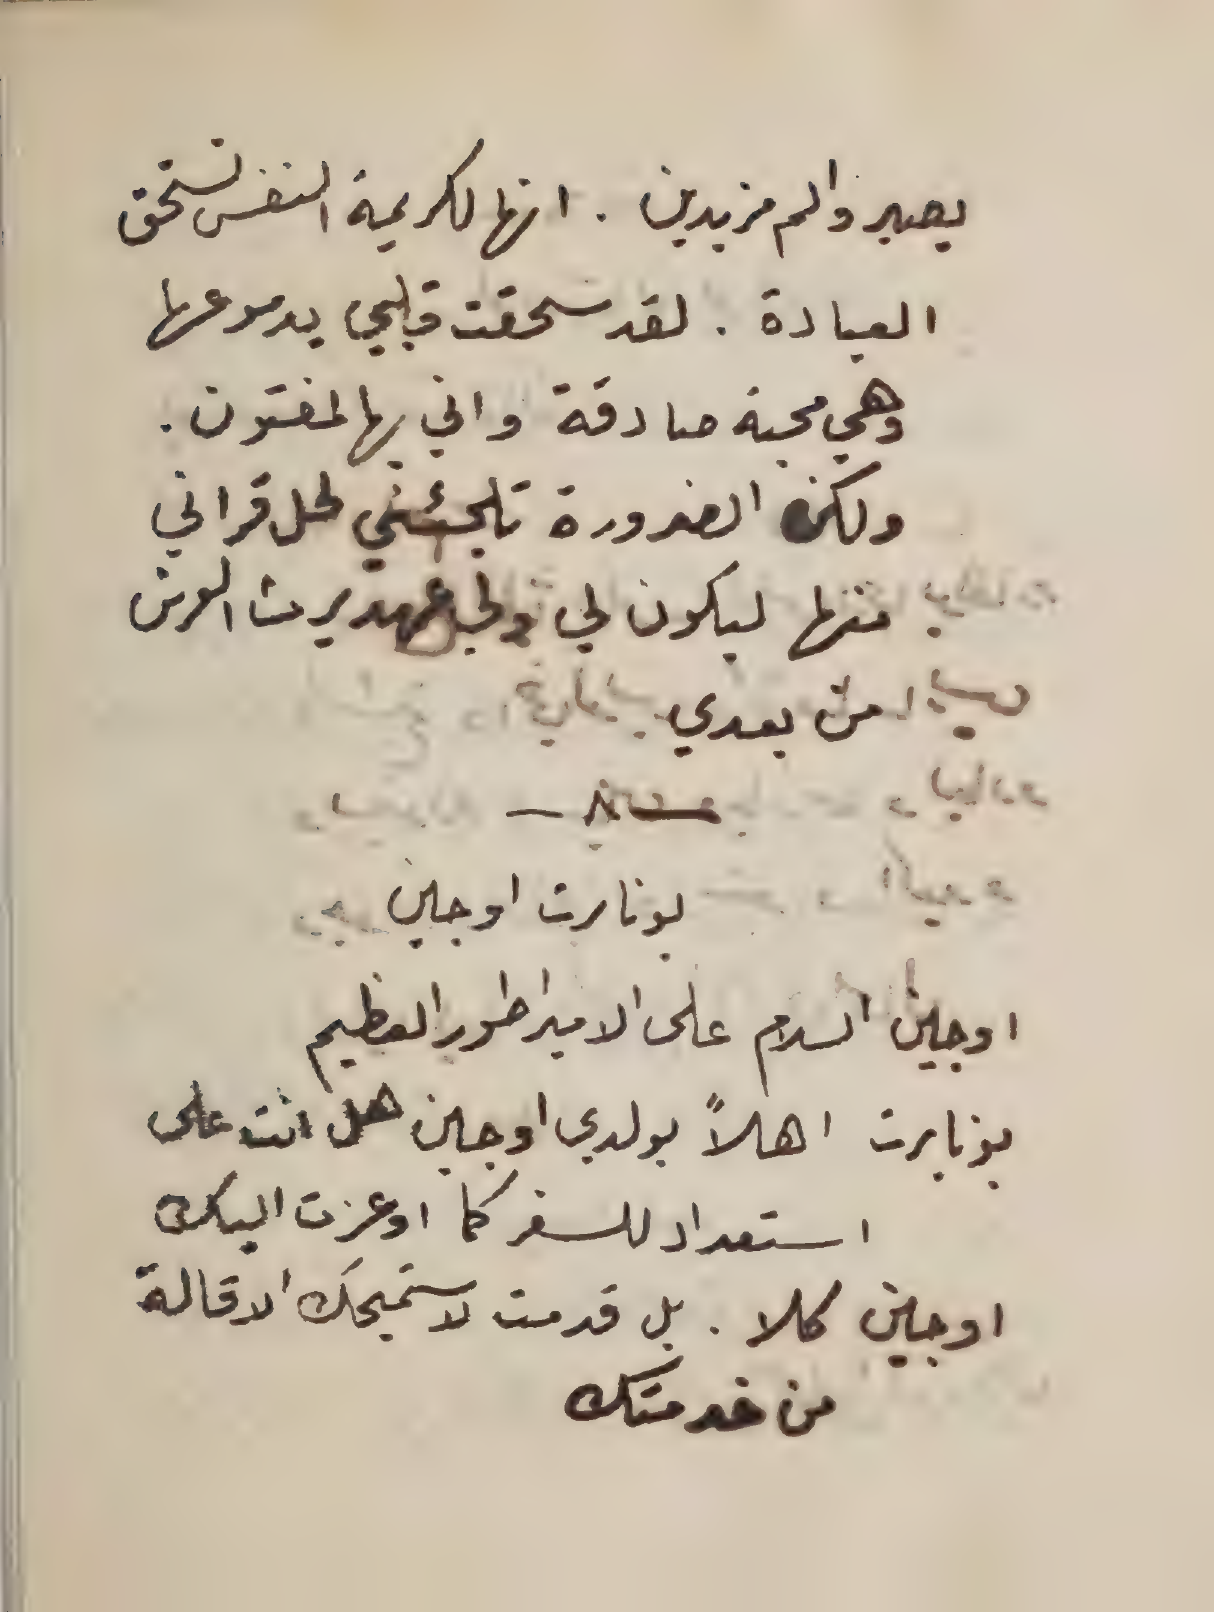 بصبر والم مزيدين . انها لكريمة النفس تستحق
العبادة . لقد سحقت قلبي بدموعها
وهي محبة صادقة واني بها لمفتون .
ولكن الضرورة تلجئني لحل قراني
منها ليكون لي ولي عهد يرث العرش
من بعدي
— ٨ —
بونابرت اوجين
اوجين السلام على الامبراطور العظيم
بونابرت اهلاً بولدي اوجين هل انت على
استعداد للسفر كما اوعزت اليك
اوجين كلا . بل قدمت لاستميحك الاقالة
من خدمتك